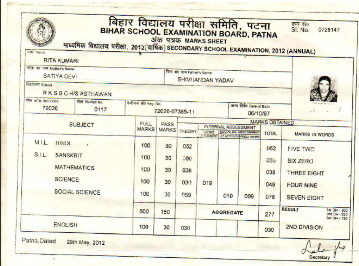 बिहार विद्यालय परीक्षा समिति, पटना
BIHAR SCHOOL EXAMINATION BOARD, PATNA
Sl. No. 0728147
अंक पत्रक MARKS SHEET
माध्यमिक विद्यालय परीक्षा, 2012 (वार्षिक) SECONDARY SCHOOL EXAMINATION, 2012 (ANNUAL)
RITA KUMARI
SATIYA DEVI
R K S B C H/S ASTHAWAN
72026 0117 72026-07365-11 06/10/97
SUBJECT FULL MARKS PASS MARKS INTERNAL ASSESSMENT MARKS OBTAINED
TOTAL MARKS IN WORDS
M.I.L. HINDI 100 30 052 052 FIVE TWO
S.I.L. SANSKRIT 100 30 060 SIX ZERO
MATHEMATICS 100 30 038 038 THREE EIGHT
SCIENCE 100 30 019 049 FOUR NINE
SOCIAL SCIENCE 100 30 010 009 078 SEVEN EIGHT
500 150 AGGREGATE 277 RESULT
ENGLISH 100 30 030 030 2ND DIVISION
Patna, Dated 29th May, 2012
Secretary